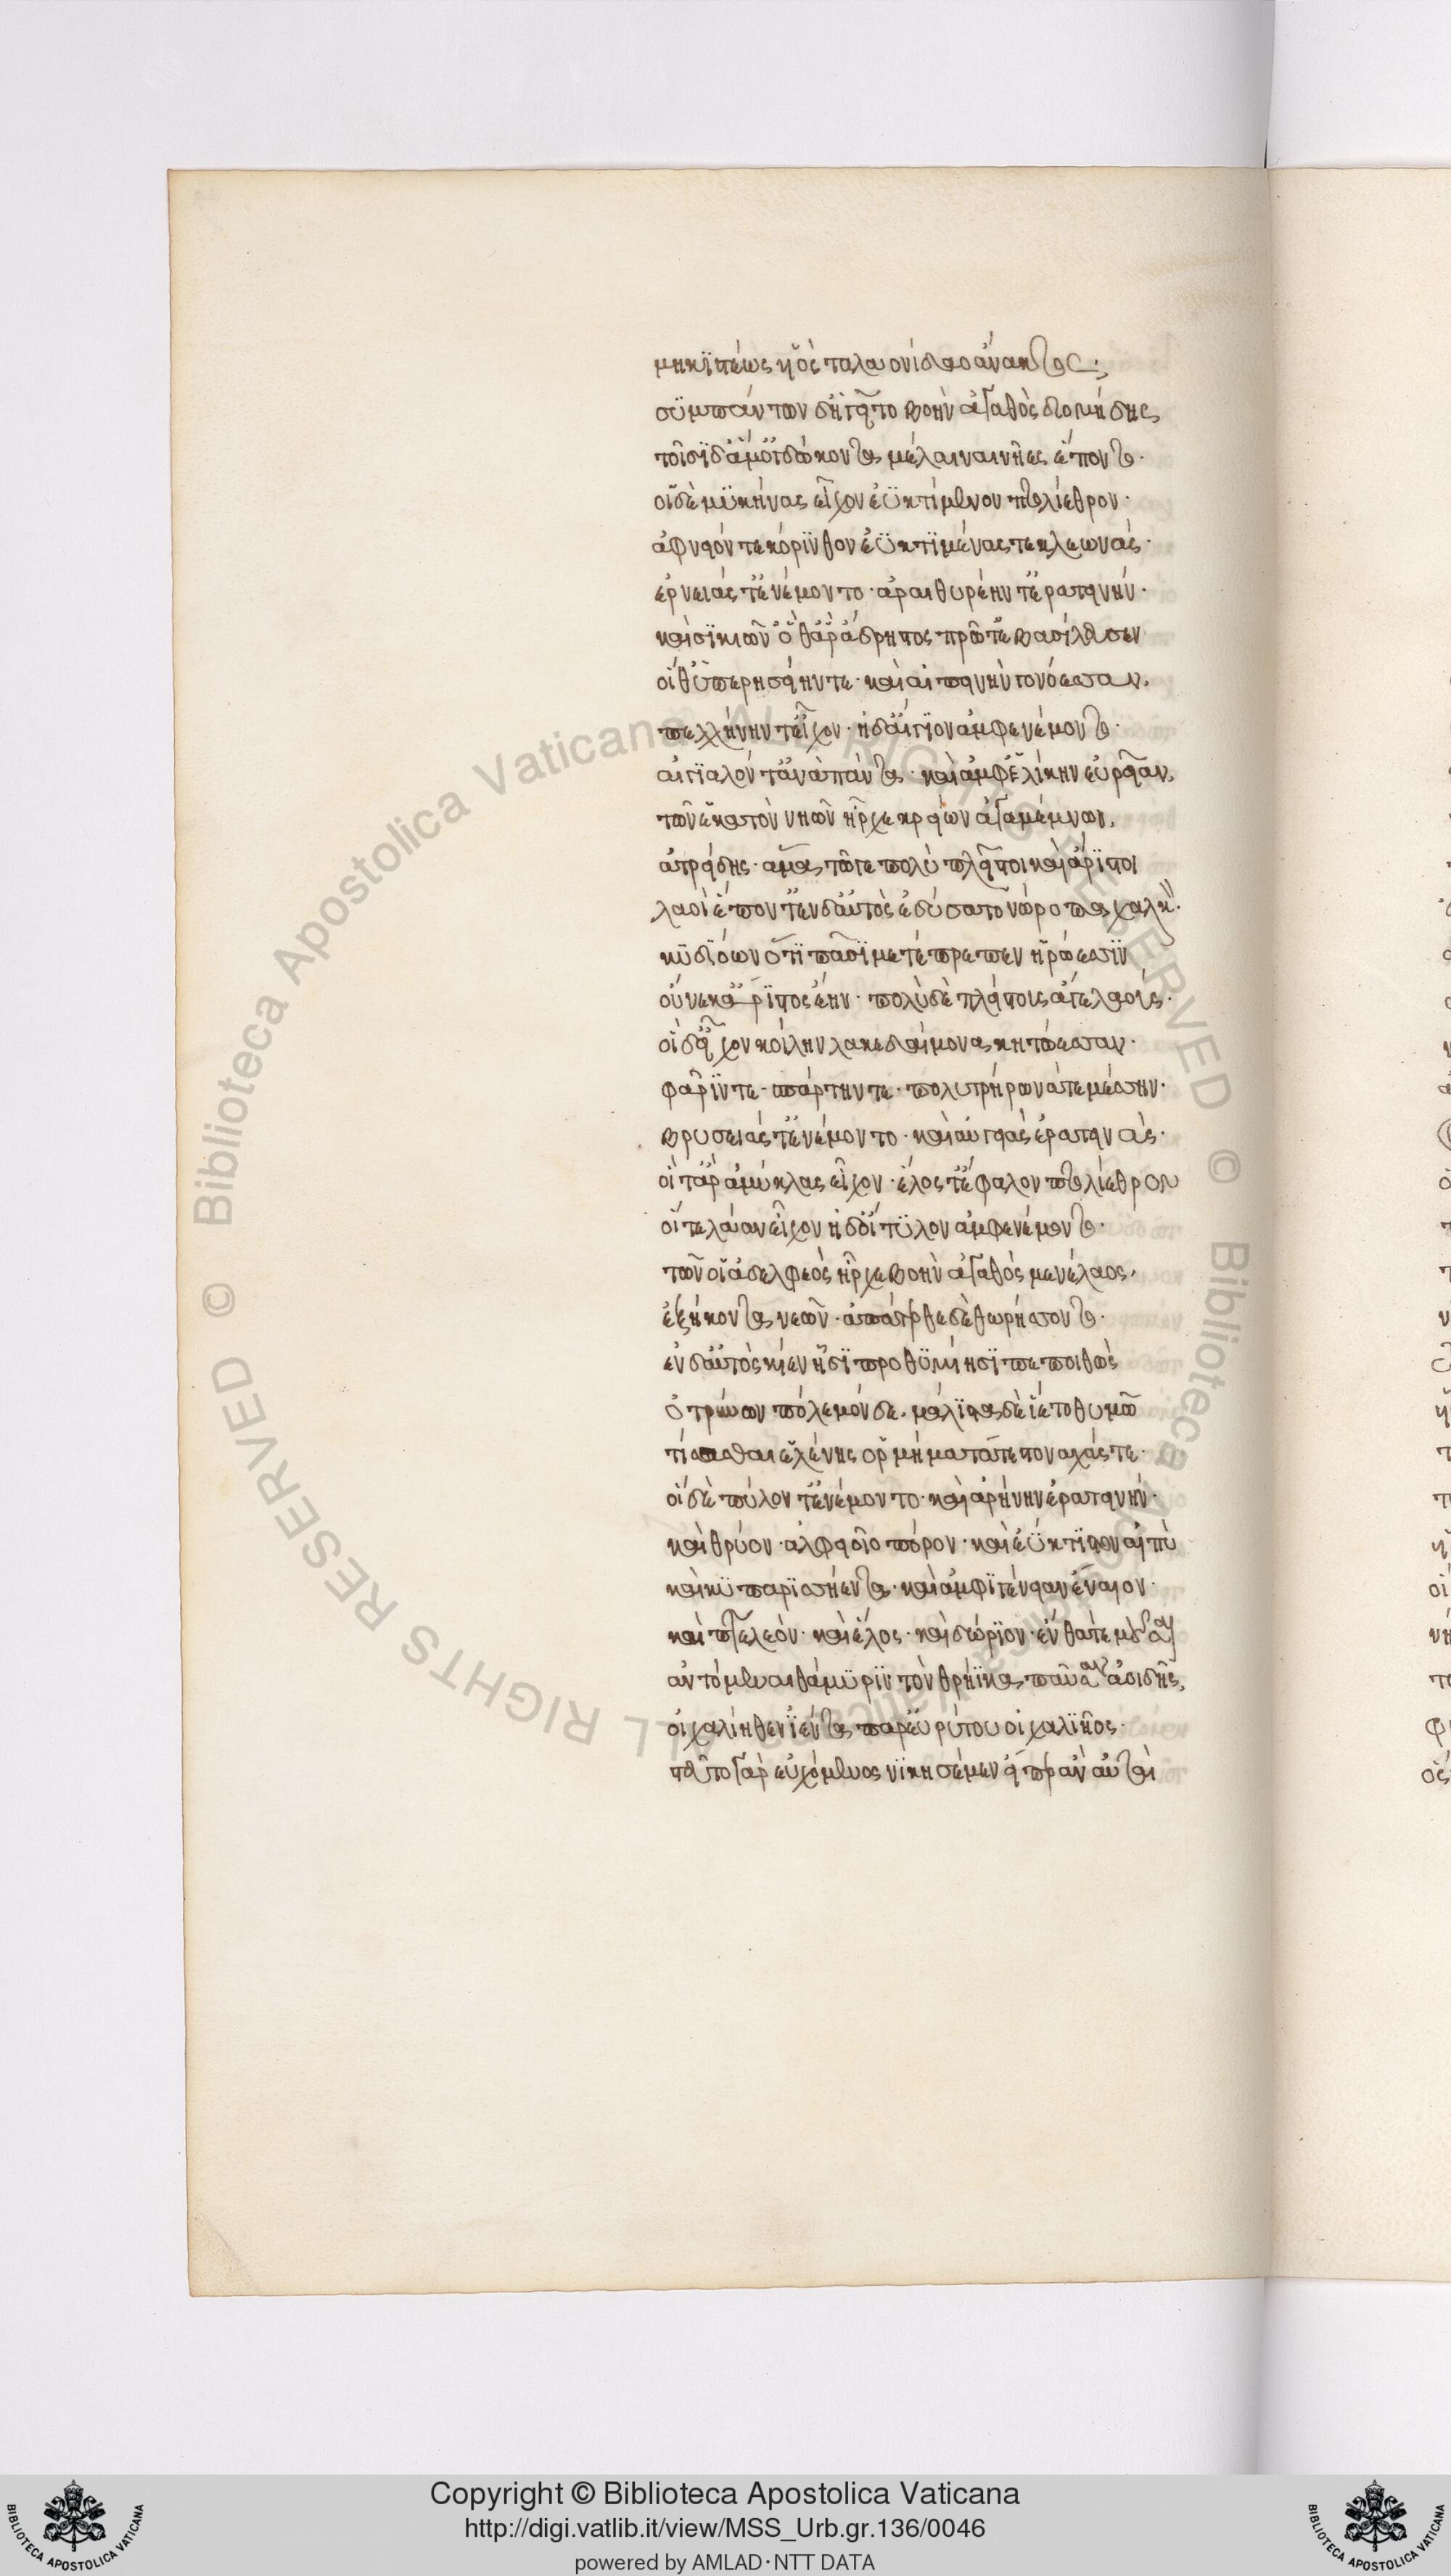 μηκιστέως υἱὸς ταλαιονίδαο ἄνακτος·
συμπάντων δ' ἡγεῖτο βοὴν ἀγαθὸς διομήδης,
τοῖσι δ' ἅμ' ὀγδώκοντα μέλαιναι νῆες ἕποντο·
οἳ δὲ μυκήνας εἶχον ἐϋκτίμενον πτολίεθρον·
ἀφνειόν τε κόρινθον ἐϋκτιμένας τε κλεωνάς·
ὀρνειάς τ' ἐνέμοντο· ἀραιθυρέην τ' ἐρατεινήν·
καὶ σικιῶν' ὅθ' ἄρ' ἄδρηστος πρῶτ' ἐβασίλευσεν
οἵ θ' ὑπερησείην τε· καὶ αἰπεινὴν γονόεσσαν,
πελλήνην τ' εἶχον· ἠδ' αἴγιον ἀμφενέμοντο·
αἰγιαλόν τ' ἀνὰ πάντα· καὶ ἀμφ' ἑλίκην εὐρεῖαν,
τῶν ἑκατὸν νηῶν ἦρχε κρείων ἀγαμέμνων,
ἀτρείδης· ἅμα τῶγε πολὺ πλεῖστοι καὶ ἄριστοι
λαοὶ ἕποντ' ἐν δ' αὐτὸς ἐδύσατο νώροπα χαλκὸν·
κυδιόων ὅτι πᾶσι μετέπρεπεν ἡρώεσσιν
οὕνεκ' ἄριστος ἔην· πολὺ δὲ πλείστους ἄγε λαούς·
οἳ δ' εἶχον κοίλην λακεδαίμονα κητώεσσαν·
φᾶρίν τε· σπάρτην τε· πολυτρήρωνά τε μέσσην·
βρυσειάς τ' ἐνέμοντο· καὶ αὐγειὰς ἐρατεινάς·
οἵ τ' ἄρ' ἀμύκλας εἶχον· ἕλος τ' ἔφαλον πτολίεθρον
οἵ τε λάαν εἶχον ἠδ' οἴτυλον ἀμφενέμοντο·
τῶν οἱ ἀδελφεὸς ἦρχε βοὴν ἀγαθὸς μενέλαος,
ἑξήκοντα νεῶν· ἀπάτερθε δὲ θωρήσσοντο·
ἐν δ' αὐτὸς κίεν ᾗσι προθυμίῃσι πεποιθὼς
ὀτρύνων πόλεμόνδε, μάλιστα δὲ ἵετο θυμῶ
τίσασθαι ἑλένης ὁρμήματά τε στοναχάς τε·
οἳ δὲ πύλον τ' ἐνέμοντο· καὶ ἀρήνην ἐρατεινήν·
καὶ θρύον· ἀλφειοῖο πόρον· καὶ ἐΰκτιτον αἰπὺ
καὶ κυπαρισσήεντα· καὶ ἀμφιγένειαν ἔναιον·
καὶ πτελεὸν· καὶ ἕλος· καὶ δώριον· ἔνθά τε μοῦσαι
ἀντόμεναι θάμυριν τὸν θρήϊκα παῦσαν ἀοιδῆς,
οἰχαλίηθεν ἰόντα παρ' εὐρύτου οἰχαλιῆος·
στεῦτο γὰρ εὐχόμενος νικησέμεν εἴπερ ἂν αὐταὶ
Copyright © Biblioteca Apostolica Vaticana
http://digi.vatlib.it/view/MSS_Urb.gr.136/0046
powered by AMLAD · NTT DATA